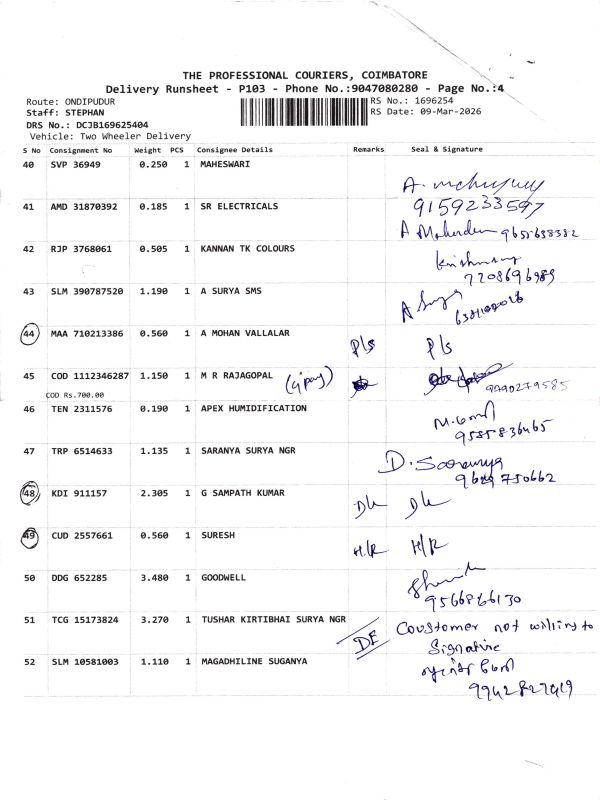 THE PROFESSIONAL COURIERS, COIMBATORE
Delivery Runsheet - P103 - Phone No.:9047080280 - Page No.:4
Route: ONDIPUDUR
RS No.: 1696254
Staff: STEPHAN
RS Date: 09-Mar-2026
DRS No.: DCJB169625404
Vehicle: Two Wheeler Delivery
S No Consignment No Weight PCS Consignee Details Remarks Seal & Signature
40 SVP 36949 0.250 1 MAHESWARI
9159233597
41 AMD 31870392 0.185 1 SR ELECTRICALS
42 RJP 3768061 0.505 1 KANNAN TK COLOURS
7708696989
43 SLM 390787520 1.190 1 A SURYA SMS
A Surya
44 MAA 710213386 0.560 1 A MOHAN VALLALAR
P/s P/s
45 COD 1112346287 1.150 1 M R RAJAGOPAL (Gpay)
COD Rs.700.00
46 TEN 2311576 0.190 1 APEX HUMIDIFICATION
9585836465
47 TRP 6514633 1.135 1 SARANYA SURYA NGR
D. Saranya
9629750662
48 KDI 911157 2.305 1 G SAMPATH KUMAR
D/L D/L
49 CUD 2557661 0.560 1 SURESH
H/R H/R
50 DDG 652285 3.480 1 GOODWELL
9566866130
51 TCG 15173824 3.270 1 TUSHAR KIRTIBHAI SURYA NGR
DF Coustomer not willing to
Signative
52 SLM 10581003 1.110 1 MAGADHILINE SUGANYA
9942827419